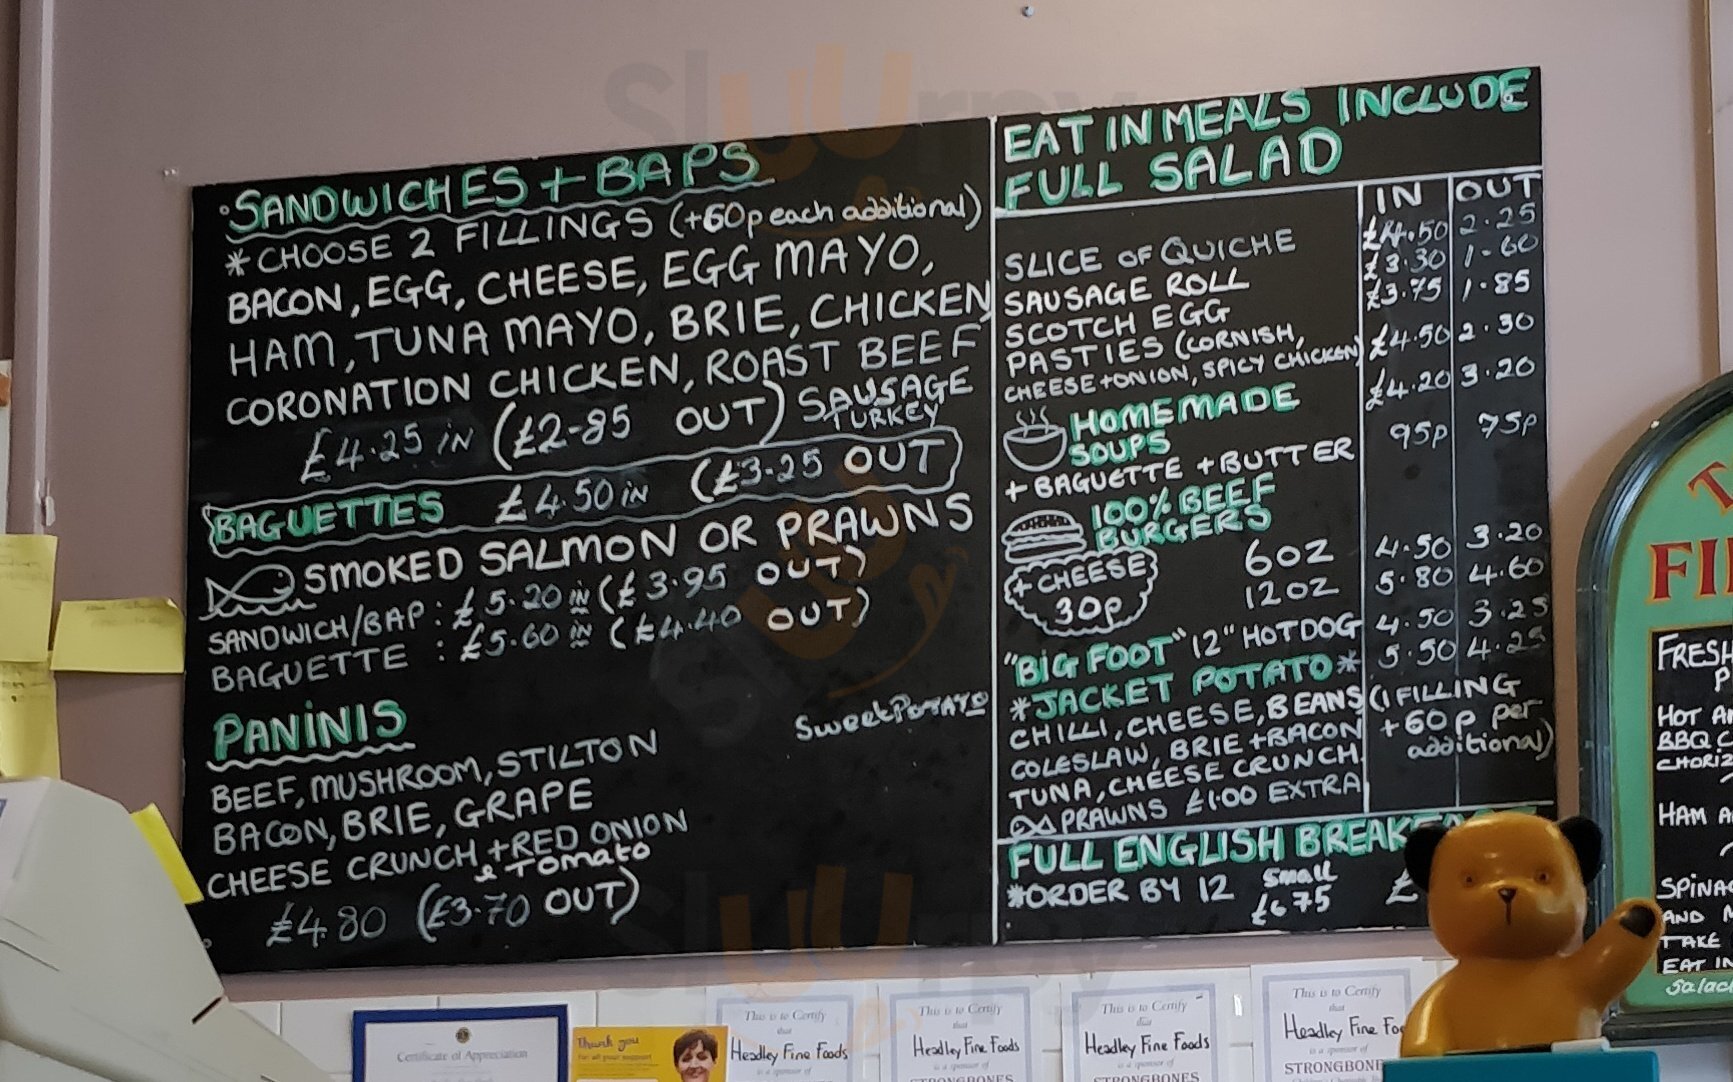 SANDWICHES + BAPS
*CHOOSE 2 FILLINGS (+60p each additional)
BACON, EGG, CHEESE, EGG MAYO,
HAM, TUNA MAYO, BRIE, CHICKEN
CORONATION CHICKEN, ROAST BEEF
£4.25 IN (£2-85 OUT) SAUSAGE
TURKEY
BAGUETTES £4.50 IN (£3.25 OUT
SMOKED SALMON OR PRAWNS
SANDWICH/BAP : £5.20 IN (£3.95 OUT)
BAGUETTE : £5.60 IN (£4.40 OUT)
PANINIS
Sweet Potato
BEEF, MUSHROOM, STILTON
BACON, BRIE, GRAPE
CHEESE CRUNCH + RED ONION
& Tomato
£4.80 (£3.70 OUT)
EAT IN MEALS INCLUDE
FULL SALAD
IN OUT
SLICE OF QUICHE £4.50 2.25
SAUSAGE ROLL £3.30 1-60
SCOTCH EGG £3.75 1.85
PASTIES (CORNISH, £4.50 2.30
CHEESE + ONION, SPICY CHICKEN)
HOMEMADE £4.20 3.20
SOUPS
+ BAGUETTE + BUTTER 95p 75p
100% BEEF
BURGERS
6OZ 4.50 3.20
+ CHEESE
30p
12OZ 5.80 4.60
"BIG FOOT" 12" HOTDOG 4.50 3.25
*JACKET POTATO* 5.50 4.25
CHILLI, CHEESE, BEANS (1 FILLING
COLESLAW, BRIE + BACON +60p per
TUNA, CHEESE CRUNCH additional)
PRAWNS £1.00 EXTRA
FULL ENGLISH
*ORDER BY 12 Small £
£6.75
FRESH
HOT
BBQ
HAM
AND
TAKE
EAT IN
Certificate of Appreciation
Thank you
for all your support
This is to Certify
that
Headley Fine Foods
is a sponsor of
This is to Certify
that
Headley Fine Foods
is a sponsor of
STRONGBONES
This is to Certify
that
Headley Fine Foods
is a sponsor of
STRONGBONES
This is to Certify
that
Headley Fine
is a sponsor of
STRONGBONES
Sluurpy
Sluurpy
Sluurpy